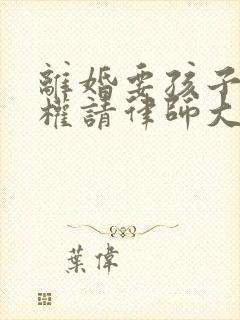 離婚要孩子
權請律師大
葉偉